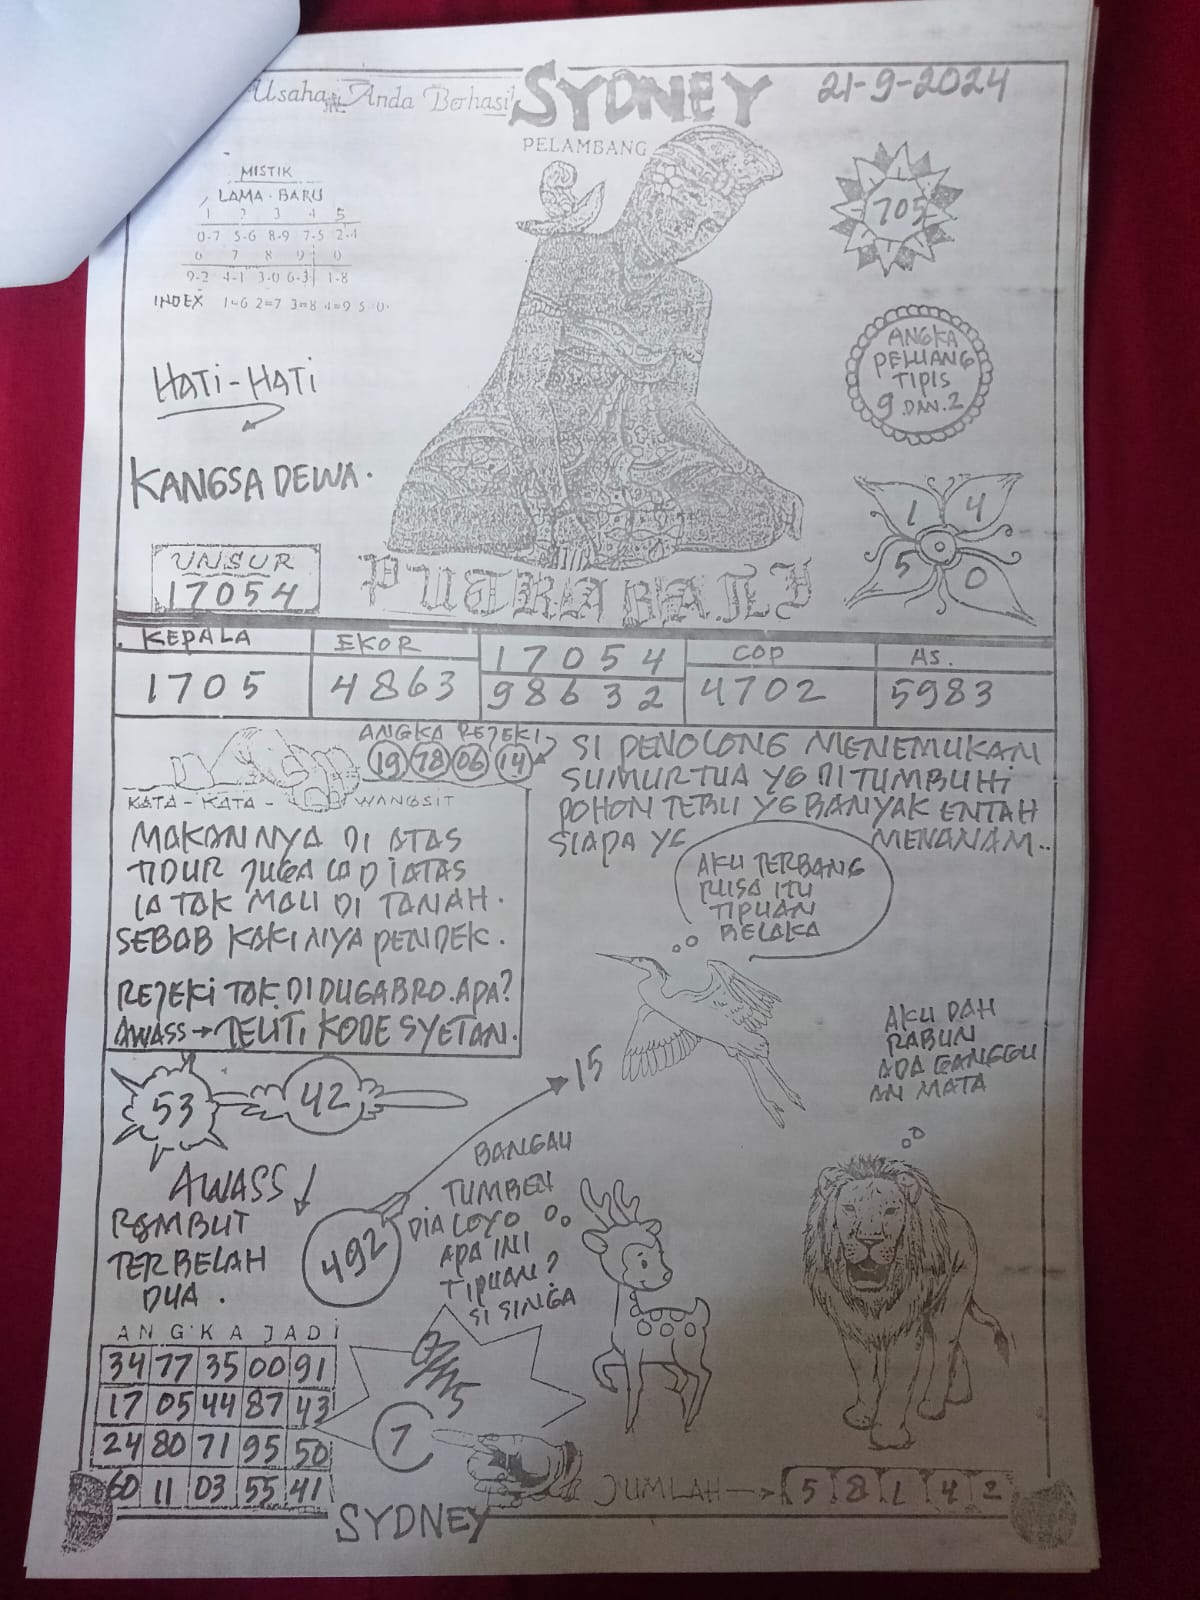 Usaha Anda Berhasil
SYDNEY
21-9-2024
PELAMBANG
MISTIK
LAMA - BARU
1 2 3 4 5
0-7 5-6 8-9 7-5 2-4
6 7 8 9 0
9-2 4-1 3-0 6-3 1-8
INDEX 1=6 2=7 3=8 4=9 5=0
705
HATI-HATI
ANGKA
PELUANG
TIPIS
9 DAN 2
KANGSA DEWA.
1 4
5 0
UNSUR
17054
PUTRA BALI
KEPALA
1705
EKOR
4863
17054
98632
COP
4702
AS.
5983
ANGKA REJEKI
19 78 06 14
KATA-KATA-WANGSIT
MAKANNYA DI ATAS
TIDUR JUGA IA DIATAS
IA TAK MAU DI TANAH.
SEBAB KAKINYA PENDEK.
REJEKI TAK DIDUGA BRO. ADA?
AWASS → TELITI KODE SYETAN.
SI PENOLONG MENEMUKAN
SUMUR TUA YG DI TUMBUHI
POHON TEBU YG BANYAK ENTAH
SIAPA YG MENANAM..
AKU TERBANG
RUSA ITU
TIPUAN
BELAKA
AKU DAH
RABUN
ADA GANGGU
AN MATA
15
53
42
AWASS
RAMBUT
TERBELAH
DUA.
492
BANGAU
TUMBEN
DIA LOYO
APA INI
TIPUAN?
SI SINGA
ANGKA JADI
34 77 35 00 91
17 05 44 87 43
24 80 71 95 50
60 11 03 55 41
7
JUMLAH → 5 8 1 4 2
SYDNEY